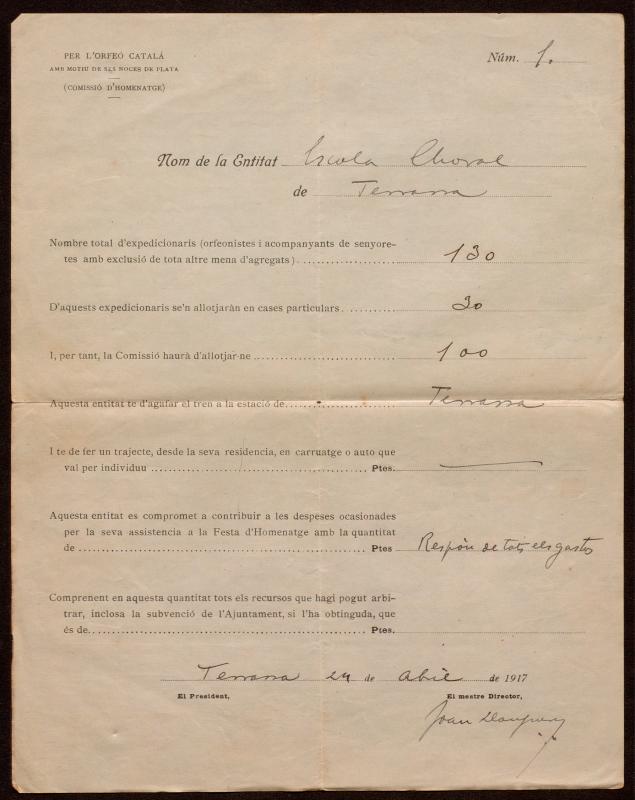 PER L'ORFEÓ CATALÁ
AMB MOTIU DE SES NOCES DE PLATA
(COMISSIÓ D'HOMENATGE)
Núm. 1.
Nom de la Entitat Escola Choral
de Terrassa
Nombre total d'expedicionaris (orfeonistes i acompanyants de senyore-
tes amb exclusió de tota altre mena d'agregats) 130
D'aquests expedicionaris se'n allotjaràn en cases particulars 30
I, per tant, la Comissió haurà d'allotjar-ne 100
Aquesta entitat te d'agafar el tren a la estació de Terrassa
I te de fer un trajecte, desde la seva residencia, en carruatge o auto que
val per individuu Ptes. —
Aquesta entitat es compromet a contribuir a les despeses ocasionades
per la seva assistencia a la Festa d'Homenatge amb la quantitat
de Ptes Respòn de tots els gastos
Comprenent en aquesta quantitat tots els recursos que hagi pogut arbi-
trar, inclosa la subvenció de l'Ajuntament, si l'ha obtinguda, que
és de Ptes.
Terrassa 24 de abril de 1917
El President, El mestre Director,
Joan Llongueras